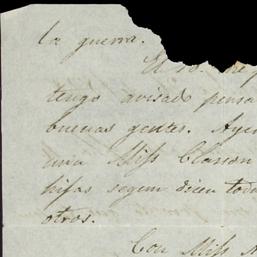 la guerra.
tengo avisado pensa
buenas gentes. Ayer
una Miss Classon
hijas segun dicen tod
otros.
Con Miss